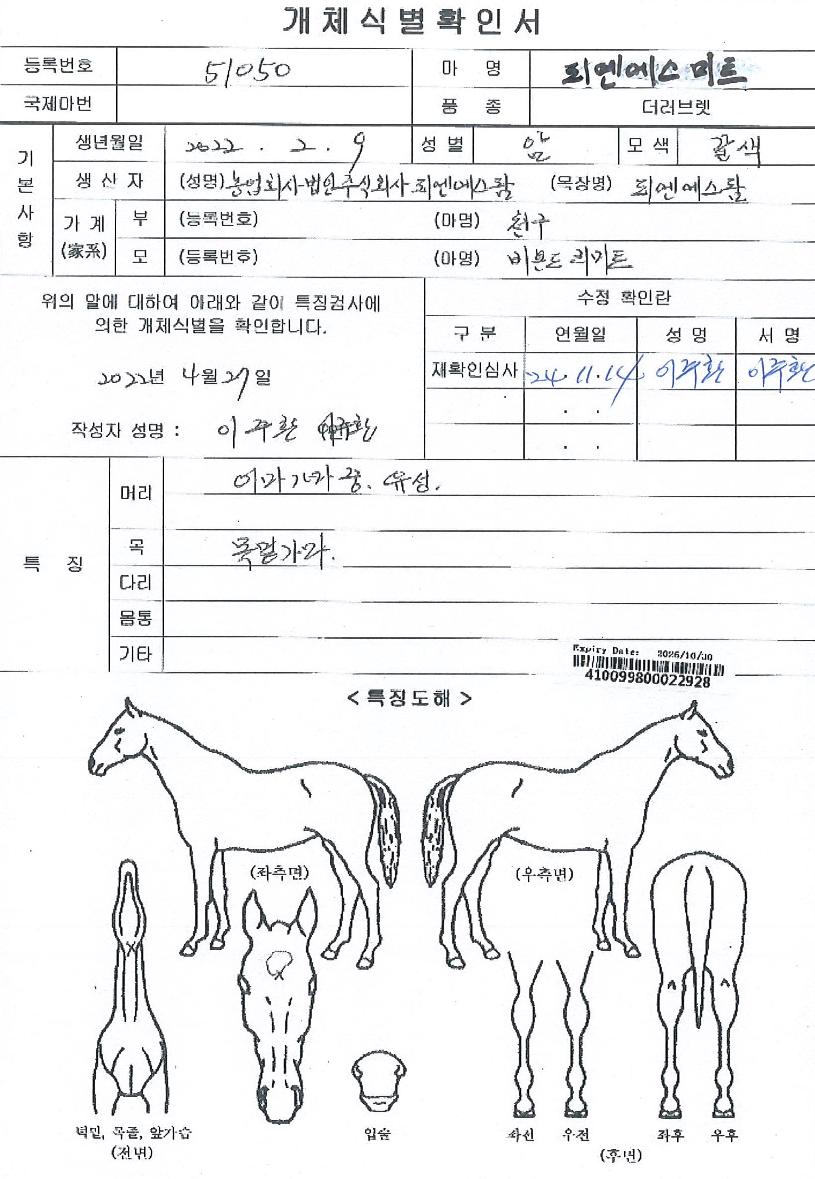 개체식별확인서
등록번호 51050 마 명 피엔에스미트
국제마번 품 종 더러브렛
기본사항
생년월일 2022. 2. 9 성별 암 모색 갈색
생산자 (성명) 농업회사법인주식회사피엔에스팜 (목장명) 피엔에스팜
가계(家系) 부 (등록번호) (마명) 한구
모 (등록번호) (마명) 비욘드 리미트
위의 말에 대하여 아래와 같이 특징검사에
의한 개체식별을 확인합니다.
2022년 4월 27일
작성자 성명 : 이주환 이주환
수정 확인란
구분 연월일 성명 서명
재확인심사 24.11.14 이주환 이주환
. .
. .
특 징
머리
목 목밑가마.
다리
몸통
기타
Expiry Date: 2026/10/30
410099800022928
<특징도해>
(좌측면) (우측면)
턱밑, 목줄, 앞가슴
(전면)
입술
좌전 우전 좌후 우후
(후면)